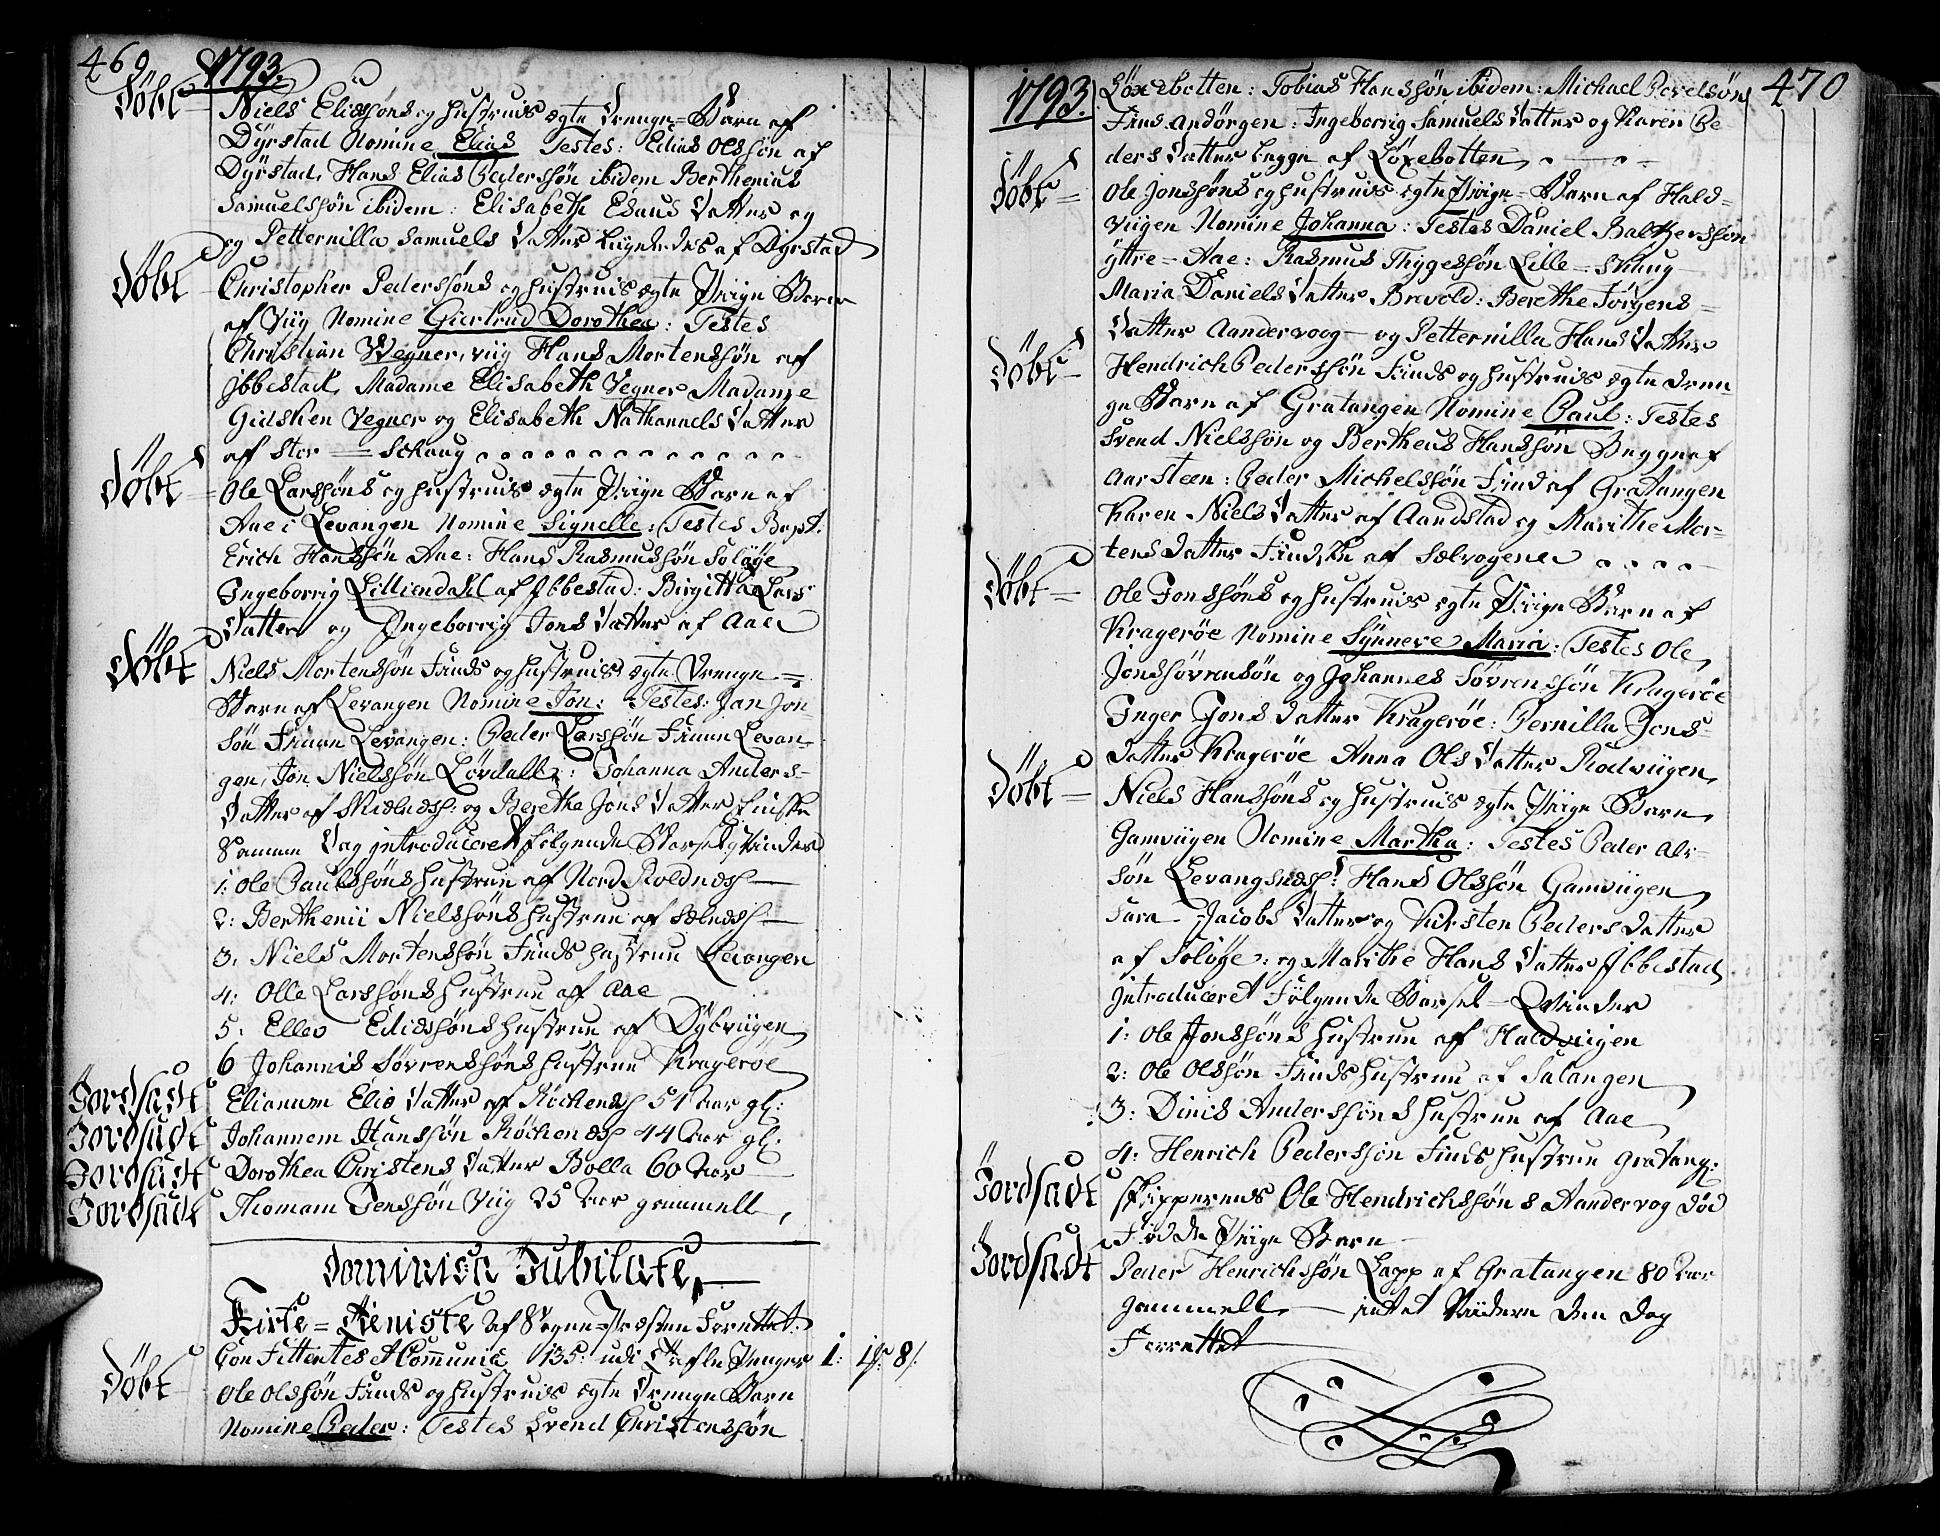 469 1793.
Döbt Niels Eliessöns og hustrues ægte Drenge=Barn af
Dÿrstad Nomine Elias Testes: Elias Olssön af
Dÿrstad, Hans Elias Pederssön ibidem Berthenius
Samuelssön ibidem: Elisabeth Esaus Datter og
og Petternilla Samuels Datter af Dÿrstad
Döbt Christopher Pederssöns og hustrues ægte Piige Barn
af Viig Nomine Giertrud Dorothea: Testes
Christian Wegner, viig Hans Mortenssön af
Ibbestad, Madame Elisabeth Vegner Madame
Gidsken Vegner og Elisabeth Nathanaels Datter
af Stor = Schaug
Döbt Ole Larssöns og hustrues ægte Piige Barn af
Aae i Levangen Nomine Signelle: Testes Bapt:
Erich Hanssön Aae: Hans Rasmussön Soløÿe
Ingeborrig Lilliendahl af Ibbestad: Birgitta Lars
Datter og Ingeborrig Jons Datter af Aae
Döbt Niels Mortenssön Finds og hustrues ægte Drenge=
Barn af Levangen Nomine Jon: Testes: Jan Jon-
sön Levangen: Peder Larssön Levan-
gen, Jon Nielssön Lövdall: Johanna Anders-
Datter af og Berethe Jons Datter Finske
Samme Dag introduceret følgende Barselqvinder
1: Ole Paulssöns hustrue af Nord Roldnæss
2: Berthenii Nielssöns hustrue af Selnæss
3, Niels Mortenssön Finds hustrue Levangen
4: Olle Larssöns hustrue af Aae
5: Ellev Eliessöns hustrue af Dÿbviigen
6 Johannis Sövrenssöns hustrue Kragerøe
Jordfadt Elianum Elis Datter af Röckenæss 51 Aar gl:
Jordfadt Johannem Hanssön Röckenæss 44 Aar gl:
Jordfadt Dorothea Christens Datter Bolla 60 Aar
Jordfadt Thomam Jenssön Viig 25 Aar gammell,
Dominica Jubilate,
Kirke=Tieniste af Sogne=Præsten Forrettet.
Confittentes et Communic 135: udi Tafle Penger 1: 1/: 8/:
Döbt Ole Olssön Finds og hustrues ægte Drenge Barn
Nomine Peder: Testes Svend Christenssön
1793. 470
Löxebotten: Tobias Hanssön ibidem: Michael Povelsön
Finds Andörgen: Ingeborrig Samuels Datter og Karen Pe-
ders Datter begge af Löxebotten,
Döbt Ole Jonssöns og hustrues ægte Piige=Barn af Hald-
viigen Nomine Johanna: Testes Daniel Baltzerssön
ÿttre-Aae: Rasmus Thÿgessön Lille=Skaug
Maria Daniels Datter Brevold: Berethe Jörgens=
Datter Aandervaag - og Petternilla Hans Datter
Döbt Hendrich Pederssön Finds og hustrues ægte Dren-
ge Barn af Gratangen Nomine Paul: Testes
Svend Nielssön og Bertheus Hanssön Begge af
Aarsteen: Peder Michelssön Find af Gratangen
Karen Niels Datter af Aandstad og Marithe Mor-
tens Datter Findske af Selvogene
Döbt Ole Jonssöns og hustrues ægte Piige Barn af
Kragerøe Nomine Sÿnneve Maria: Testes Ole
Jonssövrensön og Johannes Sövrenssön Kragerøe
Inger Jons Datter Kragerøe: Pernilla Jons-
Datter Kragerøe Anna Ols Datter Rodviigen,
Döbt Niels Hanssöns og hustrues ægte Piige Barn,
Gamviigen Nomine Martha: Testes Peder
sön Levangsnæss: Hans Olssön Gamviigen,
Sara Jacobs Datter og Kirsten Peders Datter
af Soløÿe: og Marithe Hans Datter Ibbestad
Introduceret Følgende Barsel=Qvinder
1: Ole Jonssöns hustrue af Haldviigen
2: Ole Olssön Finds hustrue af Salangen
3: Dinis Anderssöns hustrue af Aae
4: Henrich Pederssön Finds hustrue Gratang:
Jordfadt Skipperens Ole Hendrichssöns Aandervog död
Födde Piige Barn
Jordfadt Peder Henrichssön Lapp af Gratangen 80 Aar
gammell, - intet Viidere den Dag
Forrettet